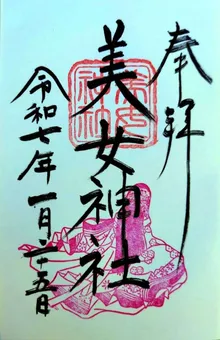 奉拝
美女神社
令和七年一月二十五日